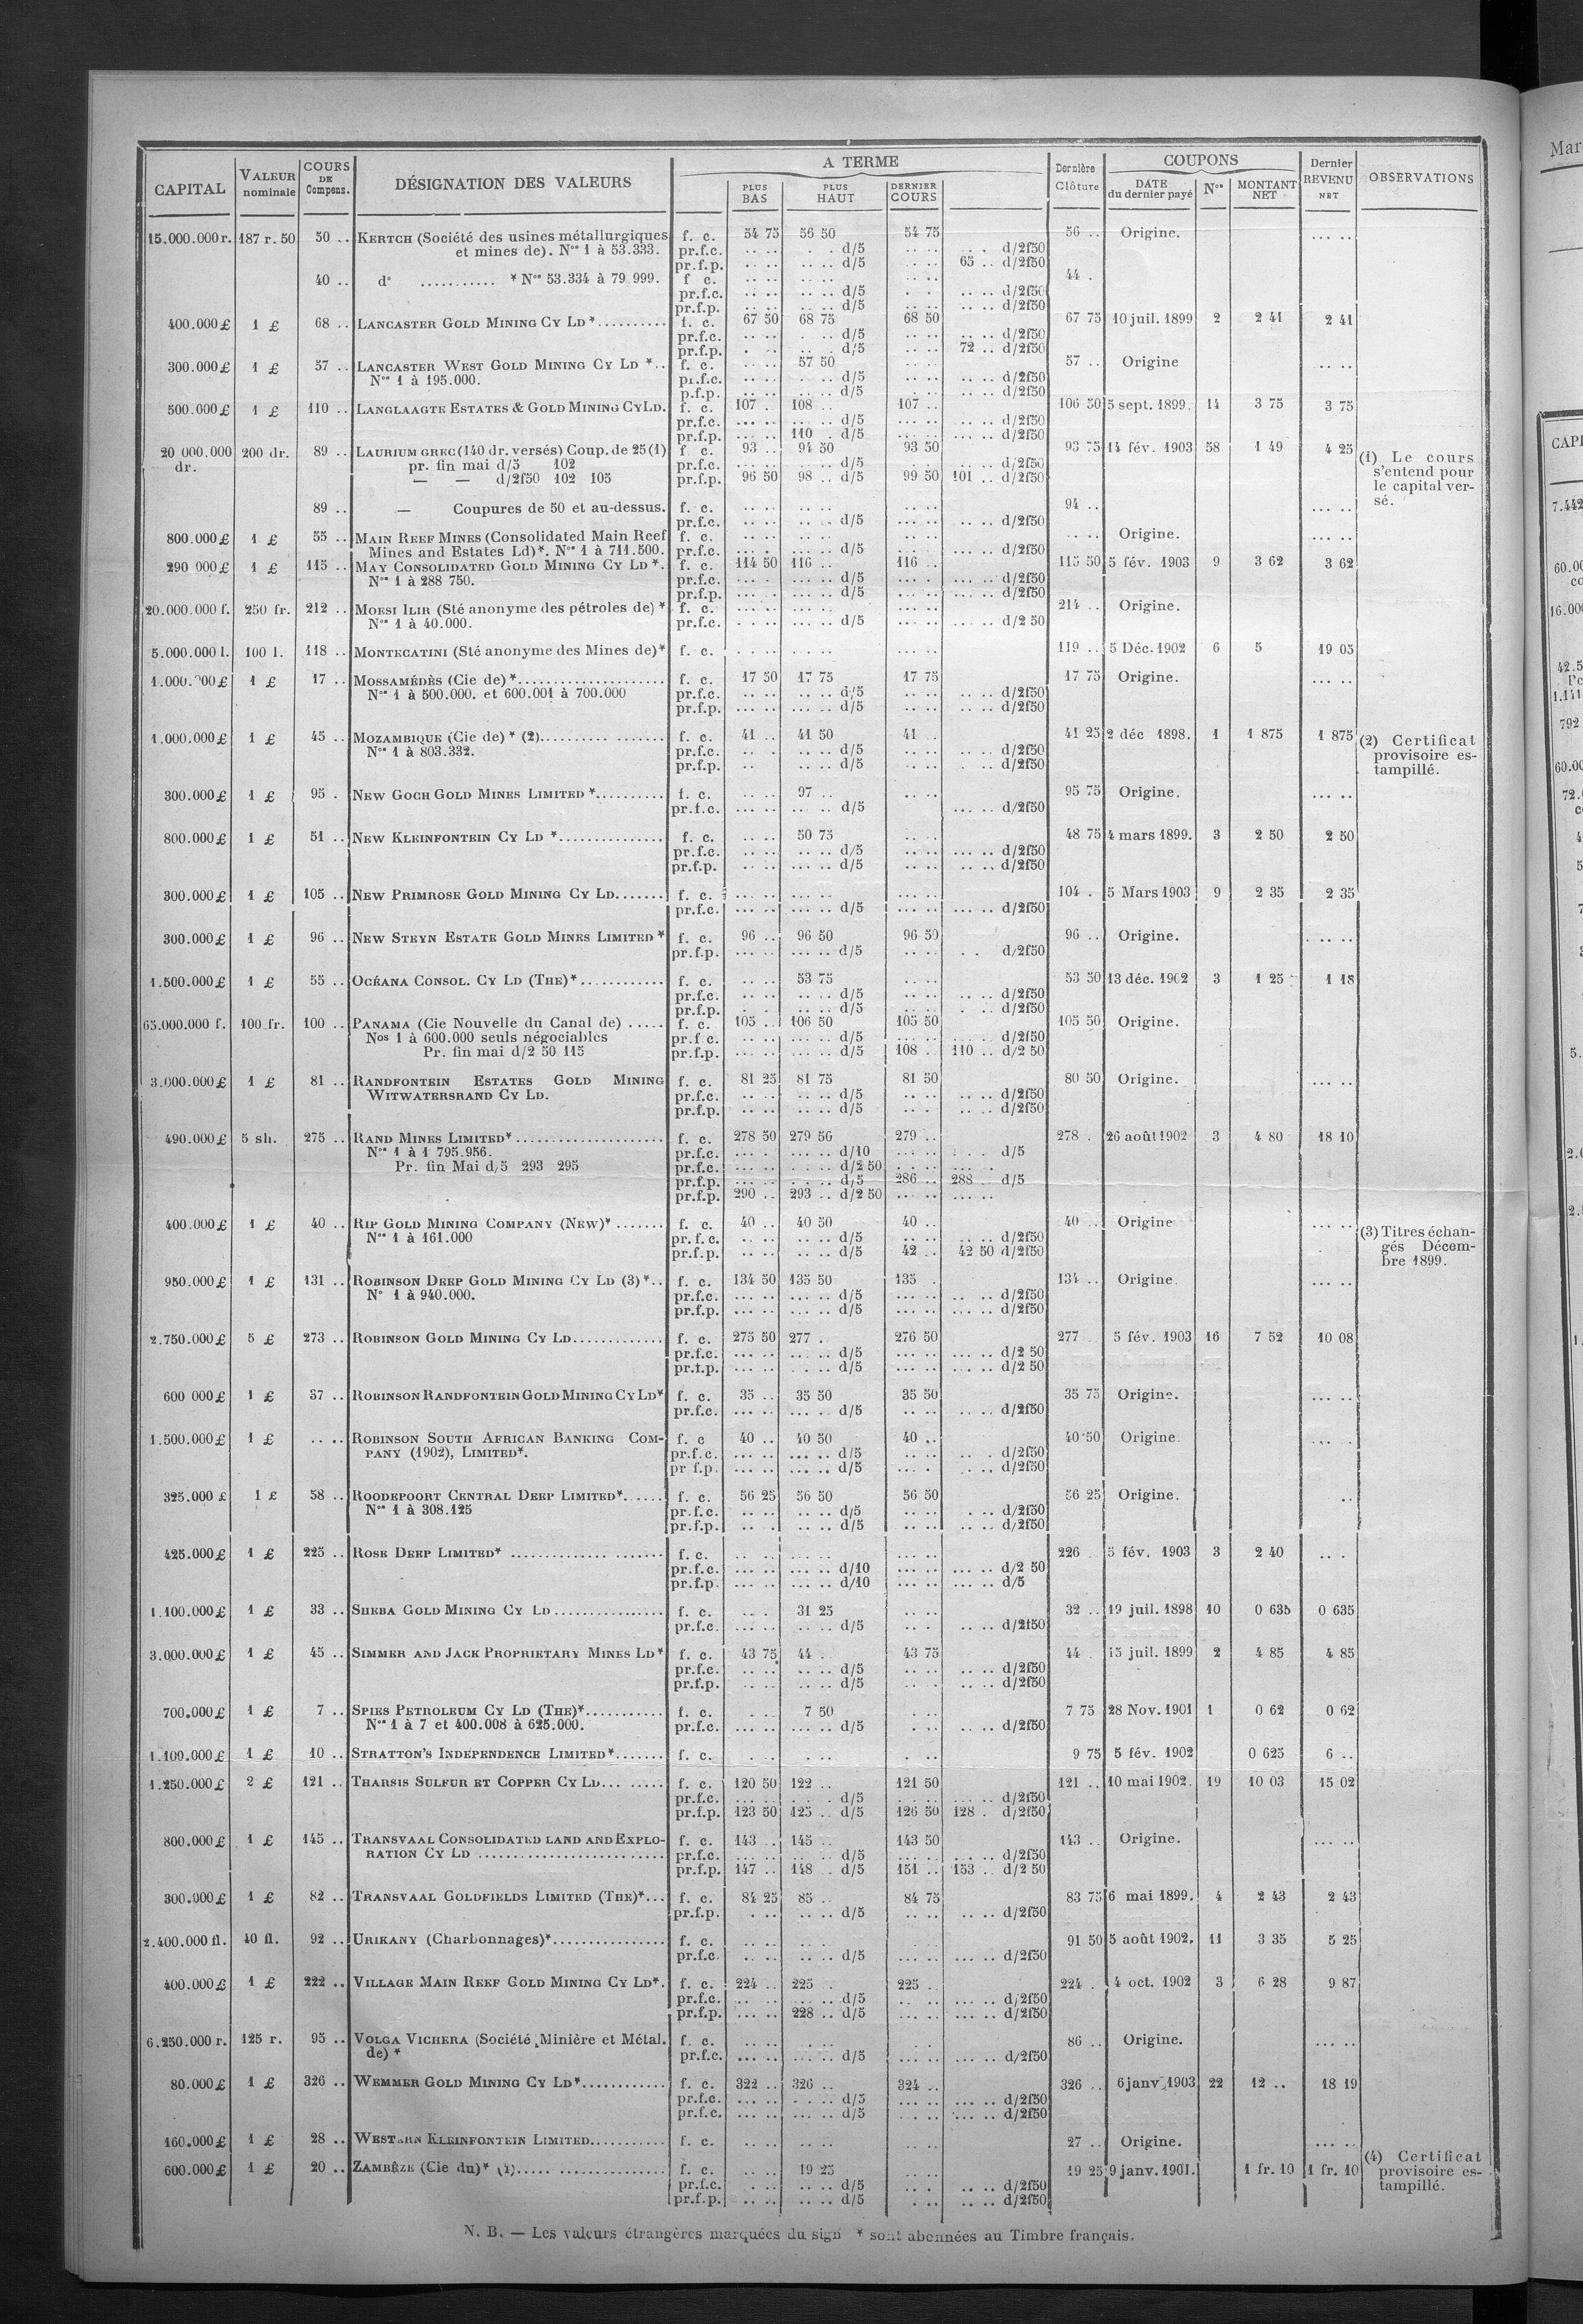 CAPITAL VALEUR nominale COURS DE Compens. DÉSIGNATION DES VALEURS A TERME PLUS BAS PLUS HAUT DERNIER COURS Dernière Clôture COUPONS DATE du dernier payé Nos MONTANT NET Dernier REVENU NET OBSERVATIONS
15.000.000 r. 187 r. 50 50 .. KERTCH (Société des usines métallurgiques f. c. 54 75 56 50 54 75 56 .. Origine. .... ..
et mines de). Nos 1 à 53.333. pr.f.c. d/5 d/2f50
pr.f.p. d/5 65 .. d/2f50
40 .. do ........... * Nos 53.334 à 79 999. f c. 44 .
pr.f.c. d/5 d/2f50
pr.f.p. d/5 d/2f50
400.000 £ 1 £ 68 .. LANCASTER GOLD MINING CY LD *.......... f. c. 67 50 68 75 68 50 67 75 10 juil. 1899 2 2 41 2 41
pr.f.c. d/5 d/2f50
pr.f.p. d/5 72 .. d/2f50
300.000 £ 1 £ 57 .. LANCASTER WEST GOLD MINING CY LD *.. f. c. 57 50 57 .. Origine .... ..
Nos 1 à 195.000. pr.f.c. d/5 d/2f50
p.f.p. d/5 d/2f50
500.000 £ 1 £ 110 .. LANGLAAGTE ESTATES & GOLD MINING CY LD. f. c. 107 . 108 .. 107 .. 106 50 5 sept. 1899. 14 3 75 3 75
pr.f.c. d/5 d/2f50
pr.f.p. 110 . d/5 d/2f50
20 000.000 dr. 200 dr. 89 .. LAURIUM GREC (140 dr. versés) Coup. de 25 (1) f c. 93 .. 94 50 93 50 93 75 14 fév. 1903 58 1 49 4 25 (1) Le cours
pr. fin mai d/5 102 pr.f.c. d/5 d/2f50 s'entend pour
— — d/2f50 102 105 pr.f.p. 96 50 98 .. d/5 99 50 101 .. d/2f50 le capital ver-
sé.
89 .. — Coupures de 50 et au-dessus. f. c. 94 .. .... ..
pr.f.c. d/5 d/2f50
800.000 £ 1 £ 55 .. MAIN REEF MINES (Consolidated Main Reef f. c. Origine. .... ..
Mines and Estates Ld)*. Nos 1 à 711.500. pr.f.c. d/5 d/2f50
290 000 £ 1 £ 115 .. MAY CONSOLIDATED GOLD MINING CY LD *. f. c. 114 50 116 .. 116 .. 115 50 5 fév. 1903 9 3 62 3 62
Nos 1 à 288 750. pr.f.c. d/5 d/2f50
pr.f.p. d/5 d/2f50
20.000.000 f. 250 fr. 212 .. MOESI ILIR (Sté anonyme des pétroles de) * f. c. 214 .. Origine.
Nos 1 à 40.000. pr.f.c. d/5 d/2 50
5.000.000 l. 100 l. 118 .. MONTECATINI (Sté anonyme des Mines de)* f. c. 119 .. 5 Déc. 1902 6 5 19 05
1.000.000 £ 1 £ 17 .. MOSSAMÉDÈS (Cie de) *.................... f. c. 17 50 17 75 17 75 17 75 Origine. .... ..
Nos 1 à 500.000. et 600.001 à 700.000 pr.f.c. d/5 d/2f50
pr.f.p. d/5 d/2f50
1.000.000 £ 1 £ 45 .. MOZAMBIQUE (Cie de) * (2)................. f. c. 41 .. 41 50 41 .. 41 25 2 déc 1898. 1 1 875 1 875 (2) Certificat
Nos 1 à 803.332. pr.f.c. d/5 d/2f50 provisoire es-
pr.f.p. d/5 d/2f50 tampillé.
300.000 £ 1 £ 95 . NEW GOCH GOLD MINES LIMITED *.......... f. c. 97 .. 95 75 Origine. .... ..
pr.f.c. d/5 d/2f50
800.000 £ 1 £ 51 .. NEW KLEINFONTEIN CY LD *............... f. c. 50 75 48 75 4 mars 1899. 3 2 50 2 50
pr.f.c. d/5 d/2f50
pr.f.p. d/5 d/2f50
300.000 £ 1 £ 105 .. NEW PRIMROSE GOLD MINING CY LD....... f. c. 104 . 5 Mars 1903 9 2 35 2 35
pr.f.c. d/5 d/2f50
300.000 £ 1 £ 96 .. NEW STEYN ESTATE GOLD MINES LIMITED * f. c. 96 .. 96 50 96 50 96 .. Origine. .... ..
pr.f.p. d/5 d/2f50
1.500.000 £ 1 £ 55 .. OCÉANA CONSOL. CY LD (THE)*............ f. c. 53 75 53 50 13 déc. 1902 3 1 25 1 18
pr.f.c. d/5 d/2f50
pr.f.p. d/5 d/2f50
65.000.000 f. 100 fr. 100 .. PANAMA (Cie Nouvelle du Canal de) ..... f. c. 105 .. 106 50 105 50 105 50 Origine.
Nos 1 à 600.000 seuls négociables pr.f c. d/5 d/2f50
Pr. fin mai d/2 50 115 pr.f.p. d/5 108 .. 110 .. d/2 50
3.000.000 £ 1 £ 81 .. RANDFONTEIN ESTATES GOLD MINING f. c. 81 25 81 75 81 50 80 50 Origine. .... ..
WITWATERSRAND CY LD. pr.f.c. d/5 d/2f50
pr.f.p. d/5 d/2f50
490.000 £ 5 sh. 275 .. RAND MINES LIMITED*..................... f. c. 278 50 279 50 279 .. 278 . 26 août 1902 3 4 80 18 10
Nos 1 à 1 795.956. pr.f.c. d/10 d/5
Pr. fin Mai d/5 293 295 pr.f.c. d/2 50
pr.f.p. d/5 286 .. 288 .. d/5
pr.f.p. 290 .. 293 .. d/2 50
400.000 £ 1 £ 40 .. RIP GOLD MINING COMPANY (NEW)*....... f. c. 40 .. 40 50 40 .. 40 .. Origine .... ..
Nos 1 à 161.000 pr.f.c. d/5 d/2f50 (3) Titres échan-
pr.f.p. d/5 42 .. 42 50 d/2f50 gés Décem-
bre 1899.
950.000 £ 1 £ 131 .. ROBINSON DEEP GOLD MINING CY LD (3)*.. f. c. 134 50 135 50 135 . 134 .. Origine. .... ..
No 1 à 940.000. pr.f.c. d/5 d/2f50
pr.f.p. d/5 d/2f50
2.750.000 £ 5 £ 273 .. ROBINSON GOLD MINING CY LD............. f. c. 275 50 277 . 276 50 277 5 fév. 1903 16 7 52 10 08
pr.f.c. d/5 d/2 50
pr.f.p. d/5 d/2 50
600 000 £ 1 £ 37 .. ROBINSON RANDFONTEIN GOLD MINING CY LD* f. c. 35 .. 35 50 35 50 35 75 Origine. .... ..
pr.f.c. d/5 d/2f50
1.500.000 £ 1 £ .. .. ROBINSON SOUTH AFRICAN BANKING COM- f. c 40 .. 40 50 40 .. 40 50 Origine.
PANY (1902), LIMITED*. pr.f.c. d/5 d/2f50
pr f.p. d/5 d/2f50
325.000 £ 1 £ 58 .. ROODEPOORT CENTRAL DEEP LIMITED*...... f. c. 56 25 56 50 56 50 56 25 Origine. ..
Nos 1 à 308.125 pr.f.c. d/5 d/2f50
pr.f.p. d/5 d/2f50
425.000 £ 1 £ 225 .. ROSE DEEP LIMITED* ..................... f. c. 226 . 5 fév. 1903 3 2 40
pr.f.c. d/10 d/2 50
pr.f.p. d/10 d/5
1.100.000 £ 1 £ 33 .. SHEBA GOLD MINING CY LD................ f. c. 31 25 32 .. 19 juil. 1898 10 0 635 0 635
pr.f.c. d/5 d/2f50
3.000.000 £ 1 £ 45 .. SIMMER AND JACK PROPRIETARY MINES LD* f. c. 43 75 44 .. 43 75 44 . 15 juil. 1899 2 4 85 4 85
pr.f.c. d/5 d/2f50
pr.f.p. d/5 d/2f50
700.000 £ 1 £ 7 .. SPIES PETROLEUM CY LD (THE)*........... f. c. 7 50 7 75 28 Nov. 1901 1 0 62 0 62
Nos 1 à 7 et 400.008 à 625.000. pr.f.c. d/5 d/2f50
1.100.000 £ 1 £ 10 .. STRATTON'S INDEPENDENCE LIMITED*....... f. c. 9 75 5 fév. 1902 0 625 6 ..
1.250.000 £ 2 £ 121 .. THARSIS SULFUR ET COPPER CY LD... ..... f. c. 120 50 122 .. 121 50 121 .. 10 mai 1902. 19 10 03 15 02
pr.f.c. d/5 d/2f50
pr.f.p. 123 50 125 .. d/5 126 50 128 . d/2f50
800.000 £ 1 £ 145 .. TRANSVAAL CONSOLIDATED LAND AND EXPLO- f. c. 143 .. 145 .. 143 50 143 .. Origine. .... ..
RATION CY LD .......................... pr.f.c. d/5 d/2f50
pr.f.p. 147 .. 148 .. d/5 151 .. 153 .. d/2 50
300.000 £ 1 £ 82 .. TRANSVAAL GOLDFIELDS LIMITED (THE)*... f. c. 84 25 85 .. 84 75 83 75 6 mai 1899. 4 2 43 2 43
pr.f.p. d/5 d/2f50
2.400.000 fl. 40 fl. 92 .. URIKANY (Charbonnages)*................ f. c. 91 50 5 août 1902. 11 3 35 5 25
pr.f.c. d/5 d/2f50
400.000 £ 1 £ 222 .. VILLAGE MAIN REEF GOLD MINING CY LD*. f. c. 224 .. 225 . 225 .. 224 . 4 oct. 1902 3 6 28 9 87
pr.f.c. d/5 d/2f50
pr.f.p. 228 .. d/5 d/2f50
6.250.000 r. 125 r. 95 .. VOLGA VICHERA (Société Minière et Métal. f. c. 86 .. Origine. .... ..
de) * pr.f.c. d/5 d/2f50
80.000 £ 1 £ 326 .. WEMMER GOLD MINING CY LD*............ f. c. 322 .. 326 .. 324 .. 326 .. 6 janv 1903 22 12 .. 18 19
pr.f.c. d/5 d/2f50
pr.f.c. d/5 d/2f50
160.000 £ 1 £ 28 .. WESTERN KLEINFONTEIN LIMITED.......... f. c. 27 .. Origine. .... ..
600.000 £ 1 £ 20 .. ZAMBÈZE (Cie du)* (4)..... ............... f. c. 19 25 19 25 9 janv. 1901. 1 fr. 10 1 fr. 10 (4) Certificat
pr.f.c. d/5 d/2f50 provisoire es-
pr.f.p. d/5 d/2f50 tampillé.
N. B. — Les valeurs étrangères marquées du sign * sont abonnées au Timbre français.
Mar
CAPI
7.442
60.00
16.000
42.5
1.141
792
60.00
72.